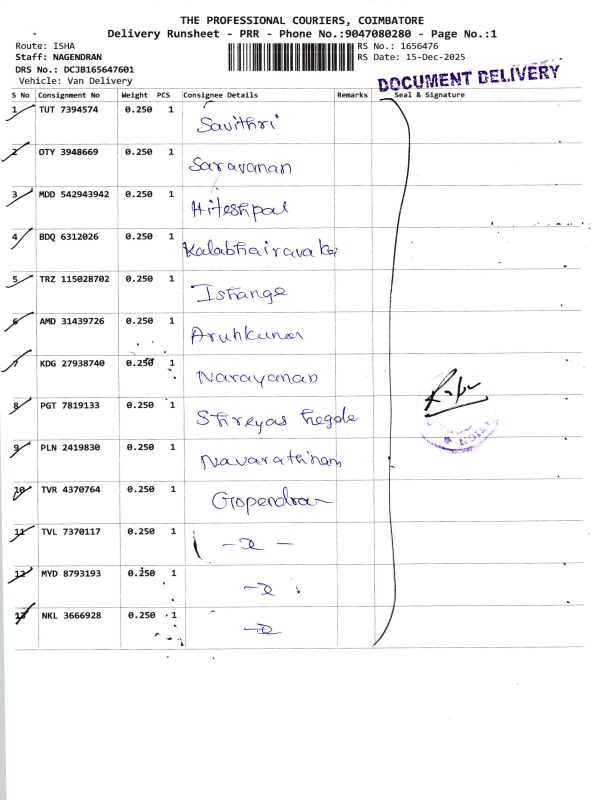 THE PROFESSIONAL COURIERS, COIMBATORE
Delivery Runsheet - PRR - Phone No.:9047080280 - Page No.:1
Route: ISHA RS No.: 1656476
Staff: NAGENDRAN RS Date: 15-Dec-2025
DRS No.: DCJB165647601
Vehicle: Van Delivery
DOCUMENT DELIVERY
S No Consignment No Weight PCS Consignee Details Remarks Seal & Signature
1 TUT 7394574 0.250 1 Savithri
2 OTY 3948669 0.250 1 Saravanan
3 MDD 542943942 0.250 1 Hiteshpal
4 BDQ 6312026 0.250 1
5 TRZ 115028702 0.250 1 Ishange
6 AMD 31439726 0.250 1 Arunkumar
7 KDG 27938740 0.250 1 Narayanan
8 PGT 7819133 0.250 1 Shreyas hegde
9 PLN 2419830 0.250 1 Navarathinam
10 TVR 4370764 0.250 1 Gopendran
11 TVL 7370117 0.250 1
12 MYD 8793193 0.250 1
13 NKL 3666928 0.250 1